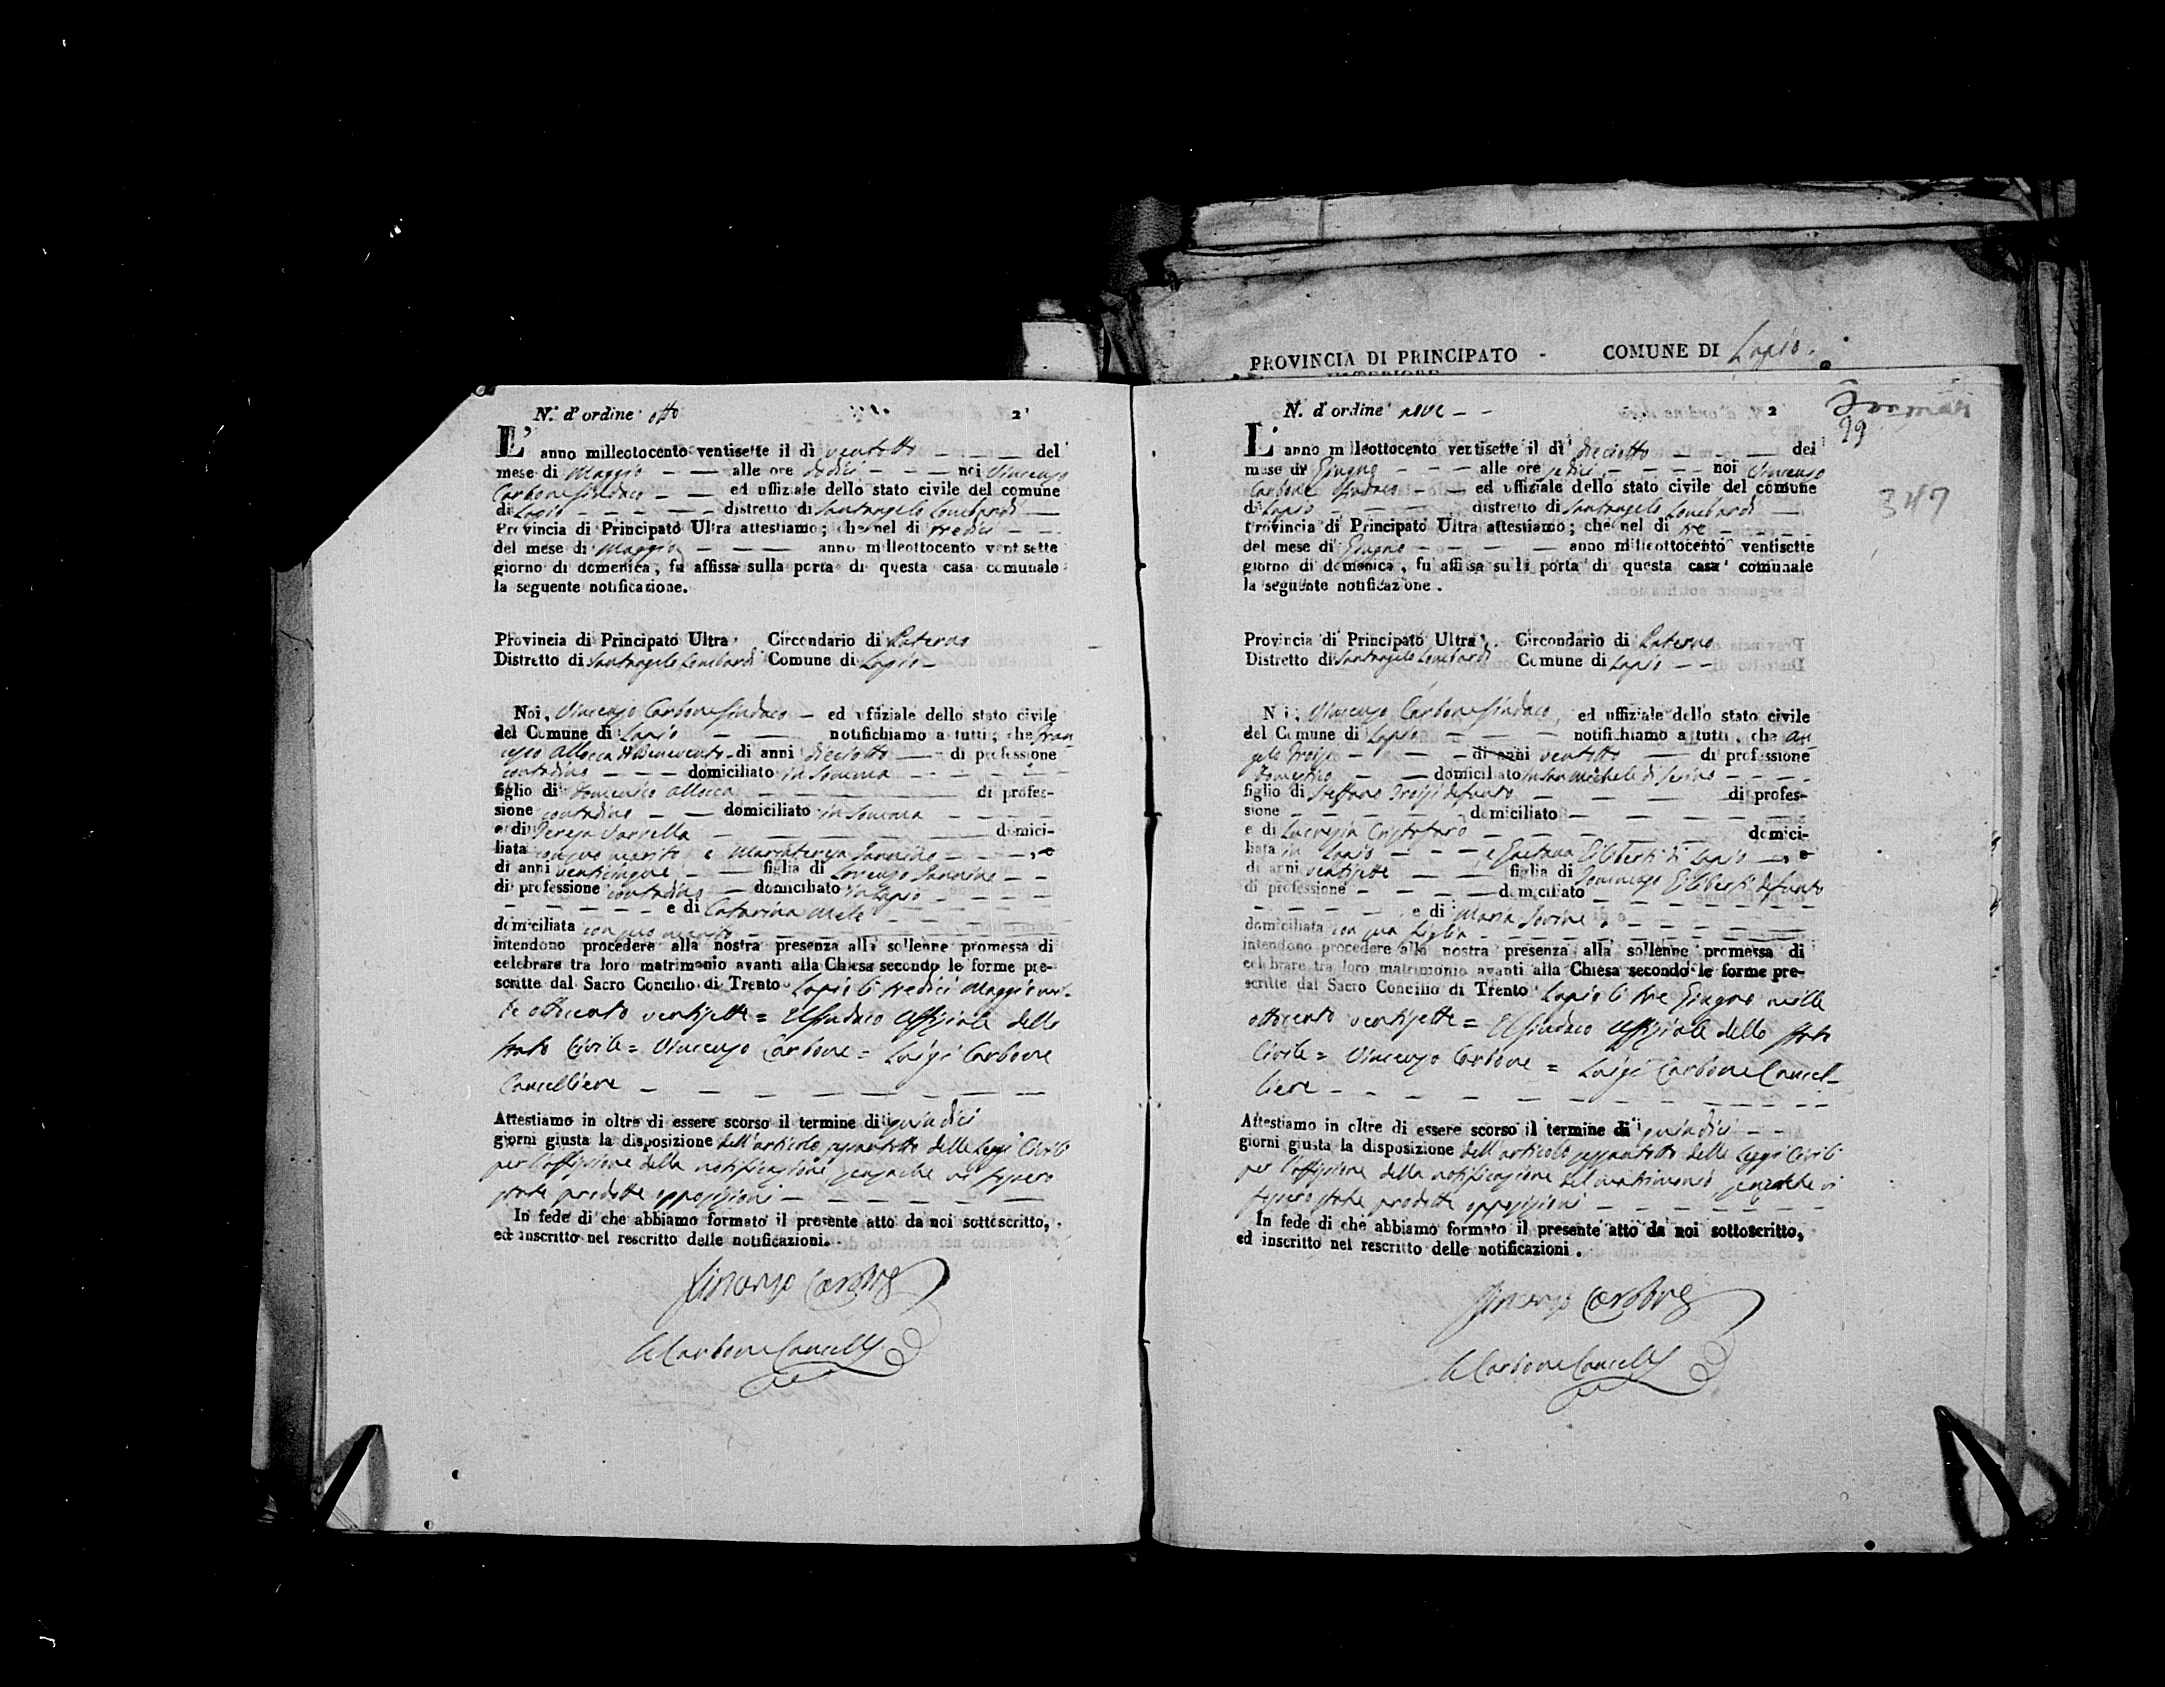 PROVINCIA DI PRINCIPATO - COMUNE DI Lapio.
N. d'ordine otto 2
L'anno milleottocento ventisette il di ventotto — — — del
mese di Maggio — — alle ore dodici — — — noi Vincenzo
Carbone Sindaco — — ed uffiziale dello stato civile del comune
di Lapio — — — — distretto di Santangelo Lombardi —
Provincia di Principato Ultra attestiamo; che nel di tredici — —
del mese di Maggio — — — anno milleottocento ventisette
giorno di domenica, fu affissa sulla porta di questa casa comunale
la seguente notificazione.
Provincia di Principato Ultra Circondario di Paterno
Distretto di Santangelo Lombardi Comune di Lapio —
Noi, Vincenzo Carbone Sindaco — ed uffiziale dello stato civile
del Comune di Lapio — — notifichiamo a tutti, che Fran-
cesco Allocca di Benevento di anni dieciotto — di professione
contadino — — — domiciliato in Somma — — — —
figlio di Domenico Allocca — — — — di profes-
sione contadino — — domiciliato in Somma — — — —
e di Teresa — — — — — domici-
liata con suo marito e Mariateresa Iannino — — —, e
di anni venticinque — — figlia di Lorenzo Iannino — —
di professione contadino — domiciliato in Lapio — — — —
— — — — — e di Catarina Mele — — — — —
domiciliata con suo marito — — — — —
intendono procedere alla nostra presenza alla sollenne promessa di
celebrare tra loro matrimonio avanti alla Chiesa secondo le forme pre-
scritte dal Sacro Concilio di Trento Lapio li tredici Maggio mil-
le ottocento ventisette = Il Sindaco Uffiziale dello
stato Civile = Vincenzo Carbone = Luigi Carbone
Cancelliere — — — — — — — —
Attestiamo in oltre di essere scorso il termine di quindici
giorni giusta la disposizione dell'articolo sessantotto delle Leggi Civili
per l'affissione della notificazione senza che vi fossero
state prodotte opposizioni — — — — — —
In fede di che abbiamo formato il presente atto da noi sottoscritto,
ed inscritto nel rescritto delle notificazioni.
Vincenzo Carbone
L Carbone Cancell
N. d'ordine nove — — 2
19
347
L'anno milleottocento ventisette il di dieciotto — — — del
mese di Giugno — — — alle ore sedici — — — — noi Vincenzo
Carbone Sindaco — — ed uffiziale dello stato civile del comune
di Lapio — — — — distretto di Santangelo Lombardi —
Provincia di Principato Ultra attestiamo; che nel di tre — — — —
del mese di Giugno — — — — anno milleottocento ventisette
giorno di domenica, fu affissa sulla porta di questa casa comunale
la seguente notificazione.
Provincia di Principato Ultra. Circondario di Paterno
Distretto di Santangelo Lombardi Comune di Lapio — —
Noi, Vincenzo Carbone Sindaco, ed uffiziale dello stato civile
del Comune di Lapio — — — notifichiamo a tutti, che An-
gelo Troisi — — — — di anni ventotto — di professione
Domestico — — domiciliato in San Michele di Serino — — — —
figlio di Steffano Troisi defunto — — — — di profes-
sione — — — — — domiciliato — — — — —
e di Lucrezia Cristofaro — — — — — domici-
liata in Lapio — — —, e Gaetana Ciliberti di Lapio —, e
di anni ventisette — — figlia di Domenico Ciliberti defunto
di professione — — — — domiciliato — — — — —
— — — — — e di Maria — — — — —
domiciliata con sua figlia — — — — — —
intendono procedere alla nostra presenza alla sollenne promessa di
celebrare tra loro matrimonio avanti alla Chiesa secondo le forme pre-
scritte dal Sacro Concilio di Trento Lapio li tre Giugno mille
ottocento ventisette = Il Sindaco Uffiziale dello stato
Civile = Vincenzo Carbone = Luigi Carbone Cancel-
liere — — — — — — — —
Attestiamo in oltre di essere scorso il termine di quindici — —
giorni giusta la disposizione dell'articolo sessantotto delle Leggi Civili
per l'affissione della notificazione del matrimonio senza che vi
fossero state prodotte opposizioni — — — — — —
In fede di che abbiamo formato il presente atto da noi sottoscritto,
ed inscritto nel rescritto delle notificazioni.
Vincenzo Carbone
L Carbone Cancell